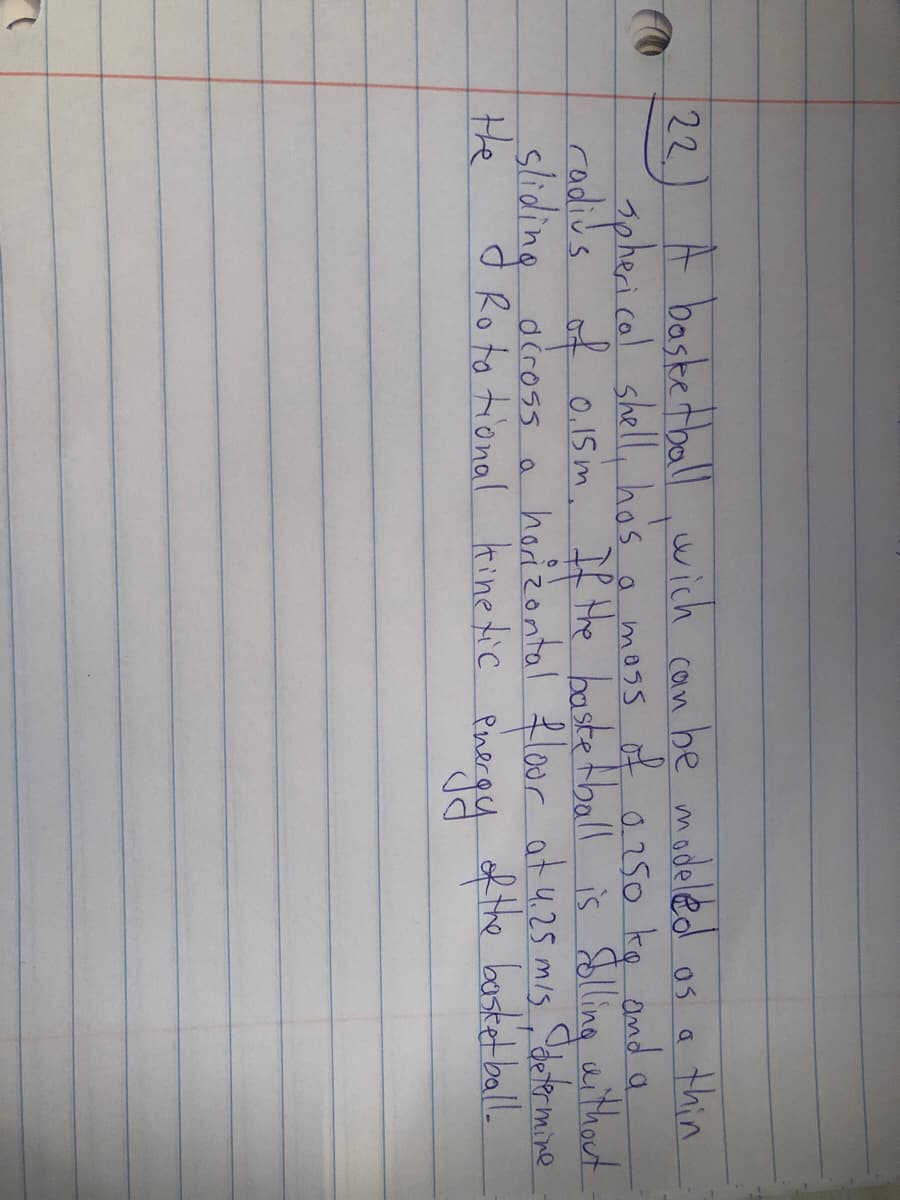 22.) A basketball, wich can be modeled as a thin
spherical shell, has a mass of 0.250 kg and a
radius of 0.15m. If the basketball is rolling without
sliding across a horizontal floor at 4.25 m/s, determine
the Rotational kinetic energy of the basketball.